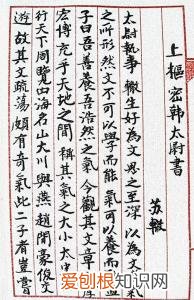 上樞密韓太尉書
蘇轍
太尉執事轍生好為文思之至深以為文
之所形然文不可以學而能氣可以養而
子曰吾善養吾浩然之氣今觀其文章
宏博充乎天地之間稱其氣之大小太史
行天下周覽四海名山大川與燕趙間豪俊交
游故其文疏蕩頗有奇氣此二子者豈嘗
爱刨根知识网